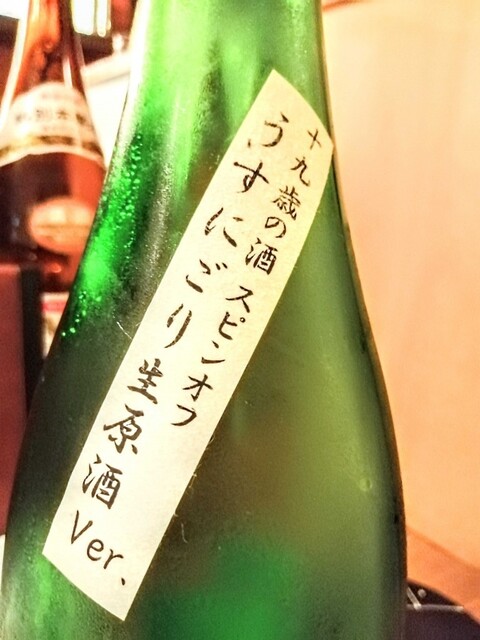 十九歳の酒 スピンオフ
うすにごり生原酒 Ver.